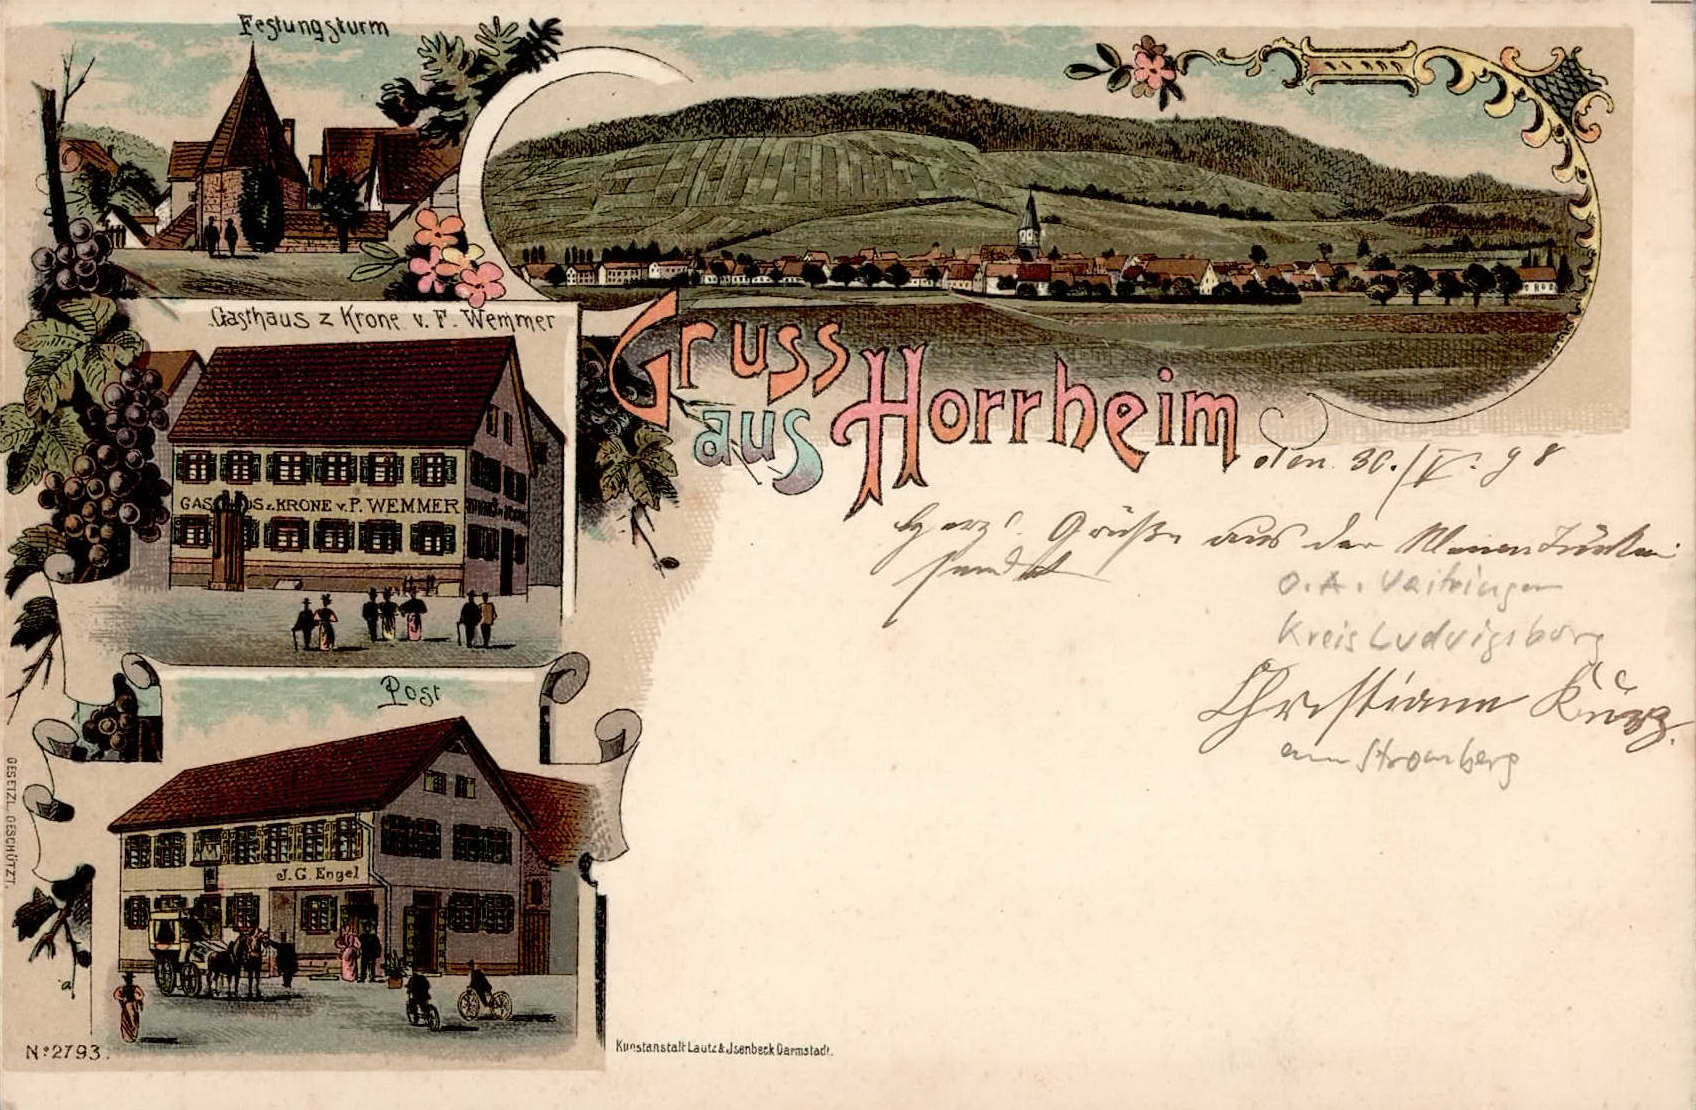 Festungsturm
Gasthaus z Krone v. F. Wemmer
GASTHAUS z. KRONE v. P. WEMMER
Gruss
aus Horrheim
den 30./IV. 98
Herzl. Grüße aus der
sendet
O.A. Vaihingen
Kreis Ludwigsburg
Christiane Kurz.
am Stromberg
Post
J. G. Engel
GESETZL. GESCHÜTZT.
Nº 2793.
Kunstanstalt Lautz & Jsenbeck Darmstadt.